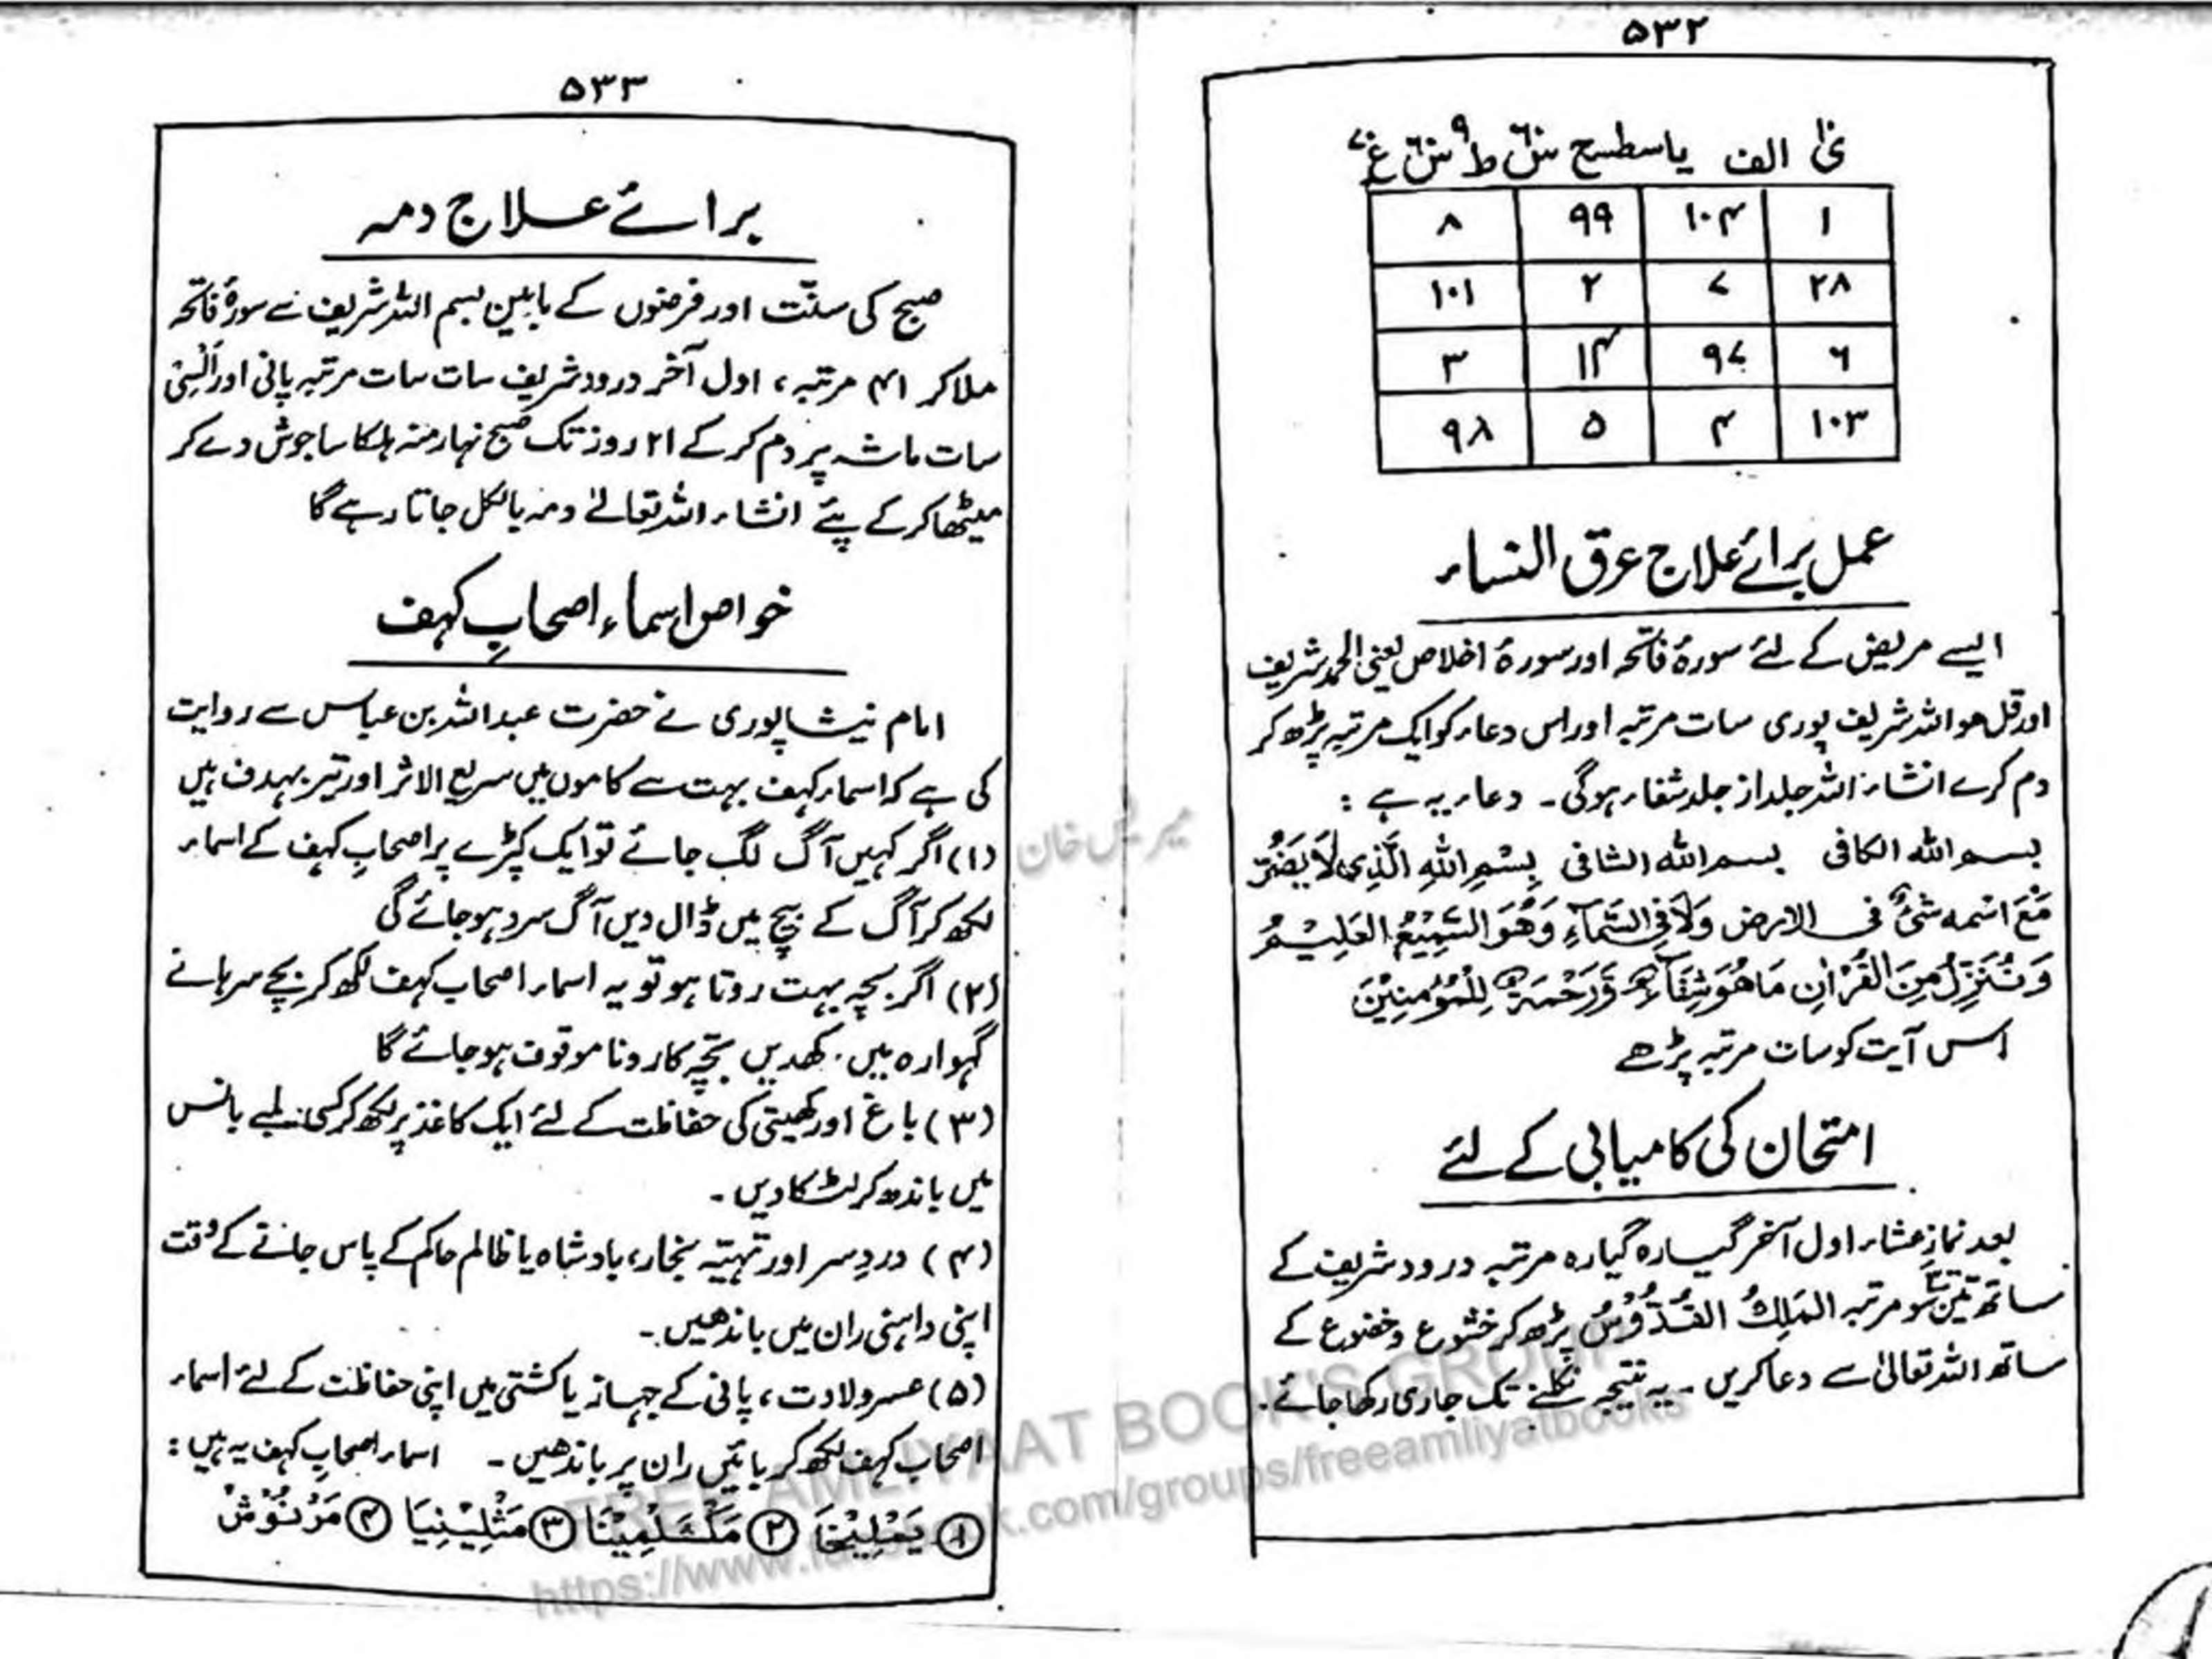 ۵۳۲
الف یا سطیح
۱ ۱۰۴ ۹۹ ۸
۲۸ ۷ ۲ ۱۰۱
۶ ۹۷ ۱۴ ۳
۱۰۳ ۴ ۵ ۹۸
عمل برائے علاج عرق النساء
ایسے مریض کے لئے سورۂ فاتحہ اور سورۂ اخلاص یعنی الحمد شریف
اور قل ھو اللہ شریف پوری سات مرتبہ اور اس دعاء کو ایک مرتبہ پڑھ کر
دم کرے انشاء اللہ جلد از جلد شفاء ہوگی۔ دعاء یہ ہے :
بسم اللہ الکافی بسم اللہ الشافی بِسْمِ اللهِ الَّذِی لَا یَضُرُّ
مَعَ اسْمه شیٌٔ فی الارض وَلَا فِی السَّمَآءِ وَهُوَ السَّمِیْعُ العَلِیْمُ
وَنُنَزِّلُ مِنَ القُرْاٰنِ مَا هُوَ شِفَآءٌ وَّرَحْمَةٌ لِّلْمُؤْمِنِیْنَ
اس آیت کو سات مرتبہ پڑھے
امتحان کی کامیابی کے لئے
بعد نمازِ عشاء اول آخر گیارہ گیارہ مرتبہ درود شریف کے
ساتھ تین سو مرتبہ المَلِكُ القُدُّوْسُ پڑھ کر خشوع و خضوع کے
ساتھ اللہ تعالیٰ سے دعا کریں۔ یہ نتیجہ نکلنے تک جاری رکھا جائے۔
۵۳۳
برائے علاج دمہ
صبح کی سنّت اور فرضوں کے مابین بسم اللہ شریف سے سورۂ فاتحہ
ملا کر ۴۱ مرتبہ، اول آخر درود شریف سات سات مرتبہ پانی اور اَلْسِیْ
سات ماشہ پر دم کر کے ۲۱ روز تک صبح نہار منہ ہلکا سا جوش دے کر
میٹھا کر کے پئے انشاء اللہ تعالےٰ دمہ بالکل جاتا رہے گا
خواص اسماء اصحابِ کہف
امام نیشاپوری نے حضرت عبد اللہ بن عباس سے روایت
کی ہے کہ اسماء کہف بہت سے کاموں میں سریع الاثر اور تیر بہدف ہیں
(۱) اگر کہیں آگ لگ جائے تو ایک کپڑے پر اصحابِ کہف کے اسماء
لکھ کر آگ کے بیچ میں ڈال دیں آگ سرد ہو جائے گی
(۲) اگر بچہ بہت روتا ہو تو یہ اسماء اصحاب کہف لکھ کر بچے سرہانے
گہوارہ میں رکھدیں بچّہ کا رونا موقوف ہو جائے گا
(۳) باغ اور کھیتی کی حفاظت کے لئے ایک کاغذ پر لکھ کر کسی لمبے بانس
میں باندھ کر لٹکا دیں۔
(۴) دردِ سر اور تہتیہ بخار، بادشاہ یا ظالم حاکم کے پاس جانے کے وقت
اپنی داہنی ران میں باندھیں۔
(۵) عسر ولادت، پانی کے جہاز یا کشتی میں اپنی حفاظت کے لئے اسماء
اصحاب کہف لکھ کر بائیں ران پر باندھیں۔ اسماء اصحابِ کہف یہ ہیں :
۱ یَمْلِیْخَا ۲ مَکْسَلْمِیْنَا ۳ مَثْلِیْنِیَا ۴ مَرْنُوْش
خان
FREE AMLIYAAT BOOK'S GROUP
https://www.facebook.com/groups/freeamliyatbooks